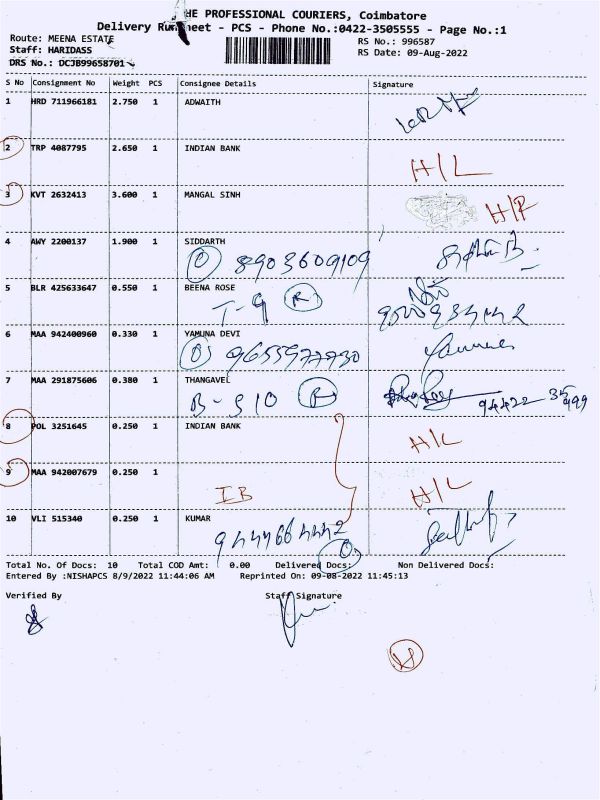 THE PROFESSIONAL COURIERS, Coimbatore
Delivery Runsheet - PCS - Phone No.:0422-3505555 - Page No.:1
Route: MEENA ESTATE
RS No.: 996587
Staff: HARIDASS
RS Date: 09-Aug-2022
DRS No.: DCJB99658701
S No Consignment No Weight PCS Consignee Details Signature
1 HRD 711966181 2.750 1 ADWAITH
2 TRP 4087795 2.650 1 INDIAN BANK
H/L
3 KVT 2632413 3.600 1 MANGAL SINH
H/R
4 AWY 2200137 1.900 1 SIDDARTH
O 8903609109
5 BLR 425633647 0.550 1 BEENA ROSE
T-9 R
6 MAA 942400960 0.330 1 YAMUNA DEVI
O 9655977730
7 MAA 291875606 0.380 1 THANGAVEL
B-510 R
8 POL 3251645 0.250 1 INDIAN BANK
H/L
9 MAA 942007679 0.250 1
IB H/L
10 VLI 515340 0.250 1 KUMAR
9444664442
O
Total No. Of Docs: 10 Total COD Amt: 0.00 Delivered Docs: Non Delivered Docs:
Entered By :NISHAPCS 8/9/2022 11:44:06 AM Reprinted On: 09-08-2022 11:45:13
Verified By Staff Signature